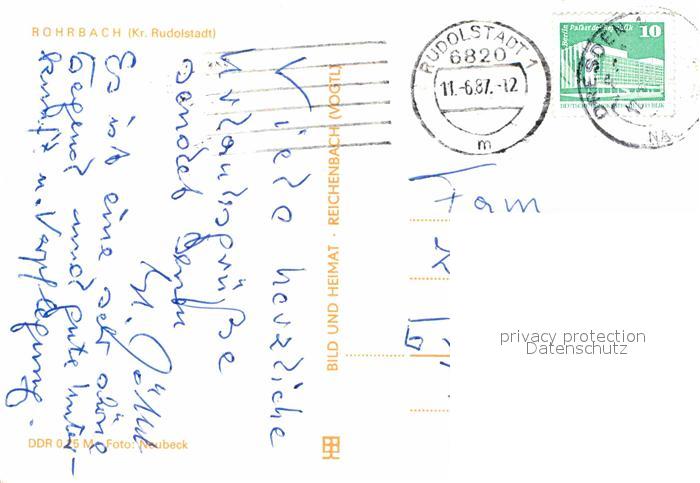 ROHRBACH (Kr. Rudolstadt)
Viele herzliche
Urlaubsgrüße
sendet
Es ist eine sehr schöne
Gegend und gute Unter-
kunft u. Verpflegung.
DDR 0,25 M Foto: Neubeck
BILD UND HEIMAT · REICHENBACH (VOGTL)
RUDOLSTADT 1
6820
11.-6.87.-12
m
Berlin Palast der Republik
10
DRESDEN
NA
Fam
privacy protection
Datenschutz